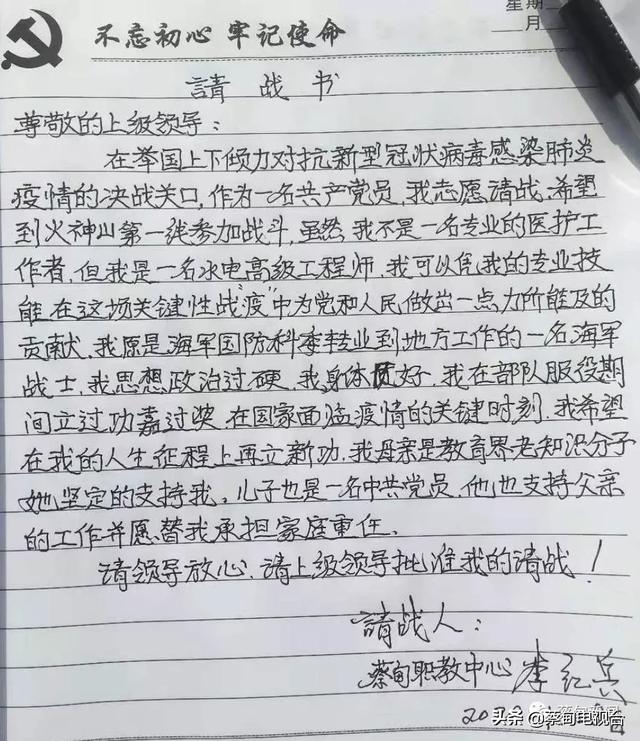 星期
不忘初心 牢记使命
月
請战书
尊敬的上级领导:
在举国上下倾力对抗新型冠状病毒感染肺炎
疫情的决战关口,作为一名共产党员,我志愿请战,希望
到火神山第一线参加战斗,虽然,我不是一名专业的医护工
作者,但我是一名水电高级工程师,我可以凭我的专业技
能,在这场关键性战"疫"中为党和人民做出一点力所能及的
贡献,我原是海军国防科委转业到地方工作的一名海军
战士,我思想政治过硬,我身体质好,我在部队服役期
间立过功嘉过奖,在国家面临疫情的关键时刻,我希望
在我的人生征程上再立新功,我母亲是教育界老知识分子
她坚定的支持我,儿子也是一名中共党员,他也支持父亲
的工作并愿替我承担家庭重任.
请领导放心,请上级领导批准我的请战!
請战人:
蔡甸职教中心 李纪兵
202
头条 @蔡甸电视台